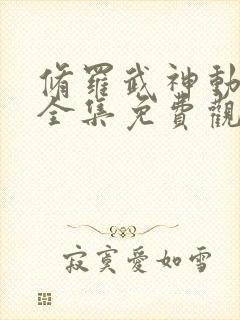 脩羅武神動
全集免費觀
寂寞愛如雪